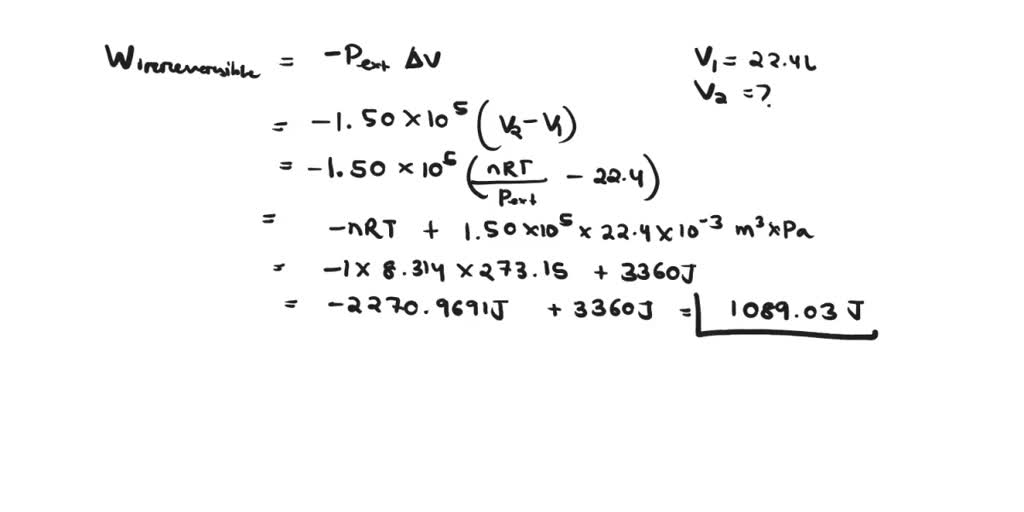 Wirreversible = -Pext ΔV
V1 = 22.4L
V2 = ?
= -1.50 × 10^5 (V2 - V1)
= -1.50 × 10^5 (nRT / Pext - 22.4)
= -nRT + 1.50×10^5 × 22.4×10^-3 m^3×Pa
= -1 × 8.314 × 273.15 + 3360J
= -2270.9691J + 3360J = 1089.03 J